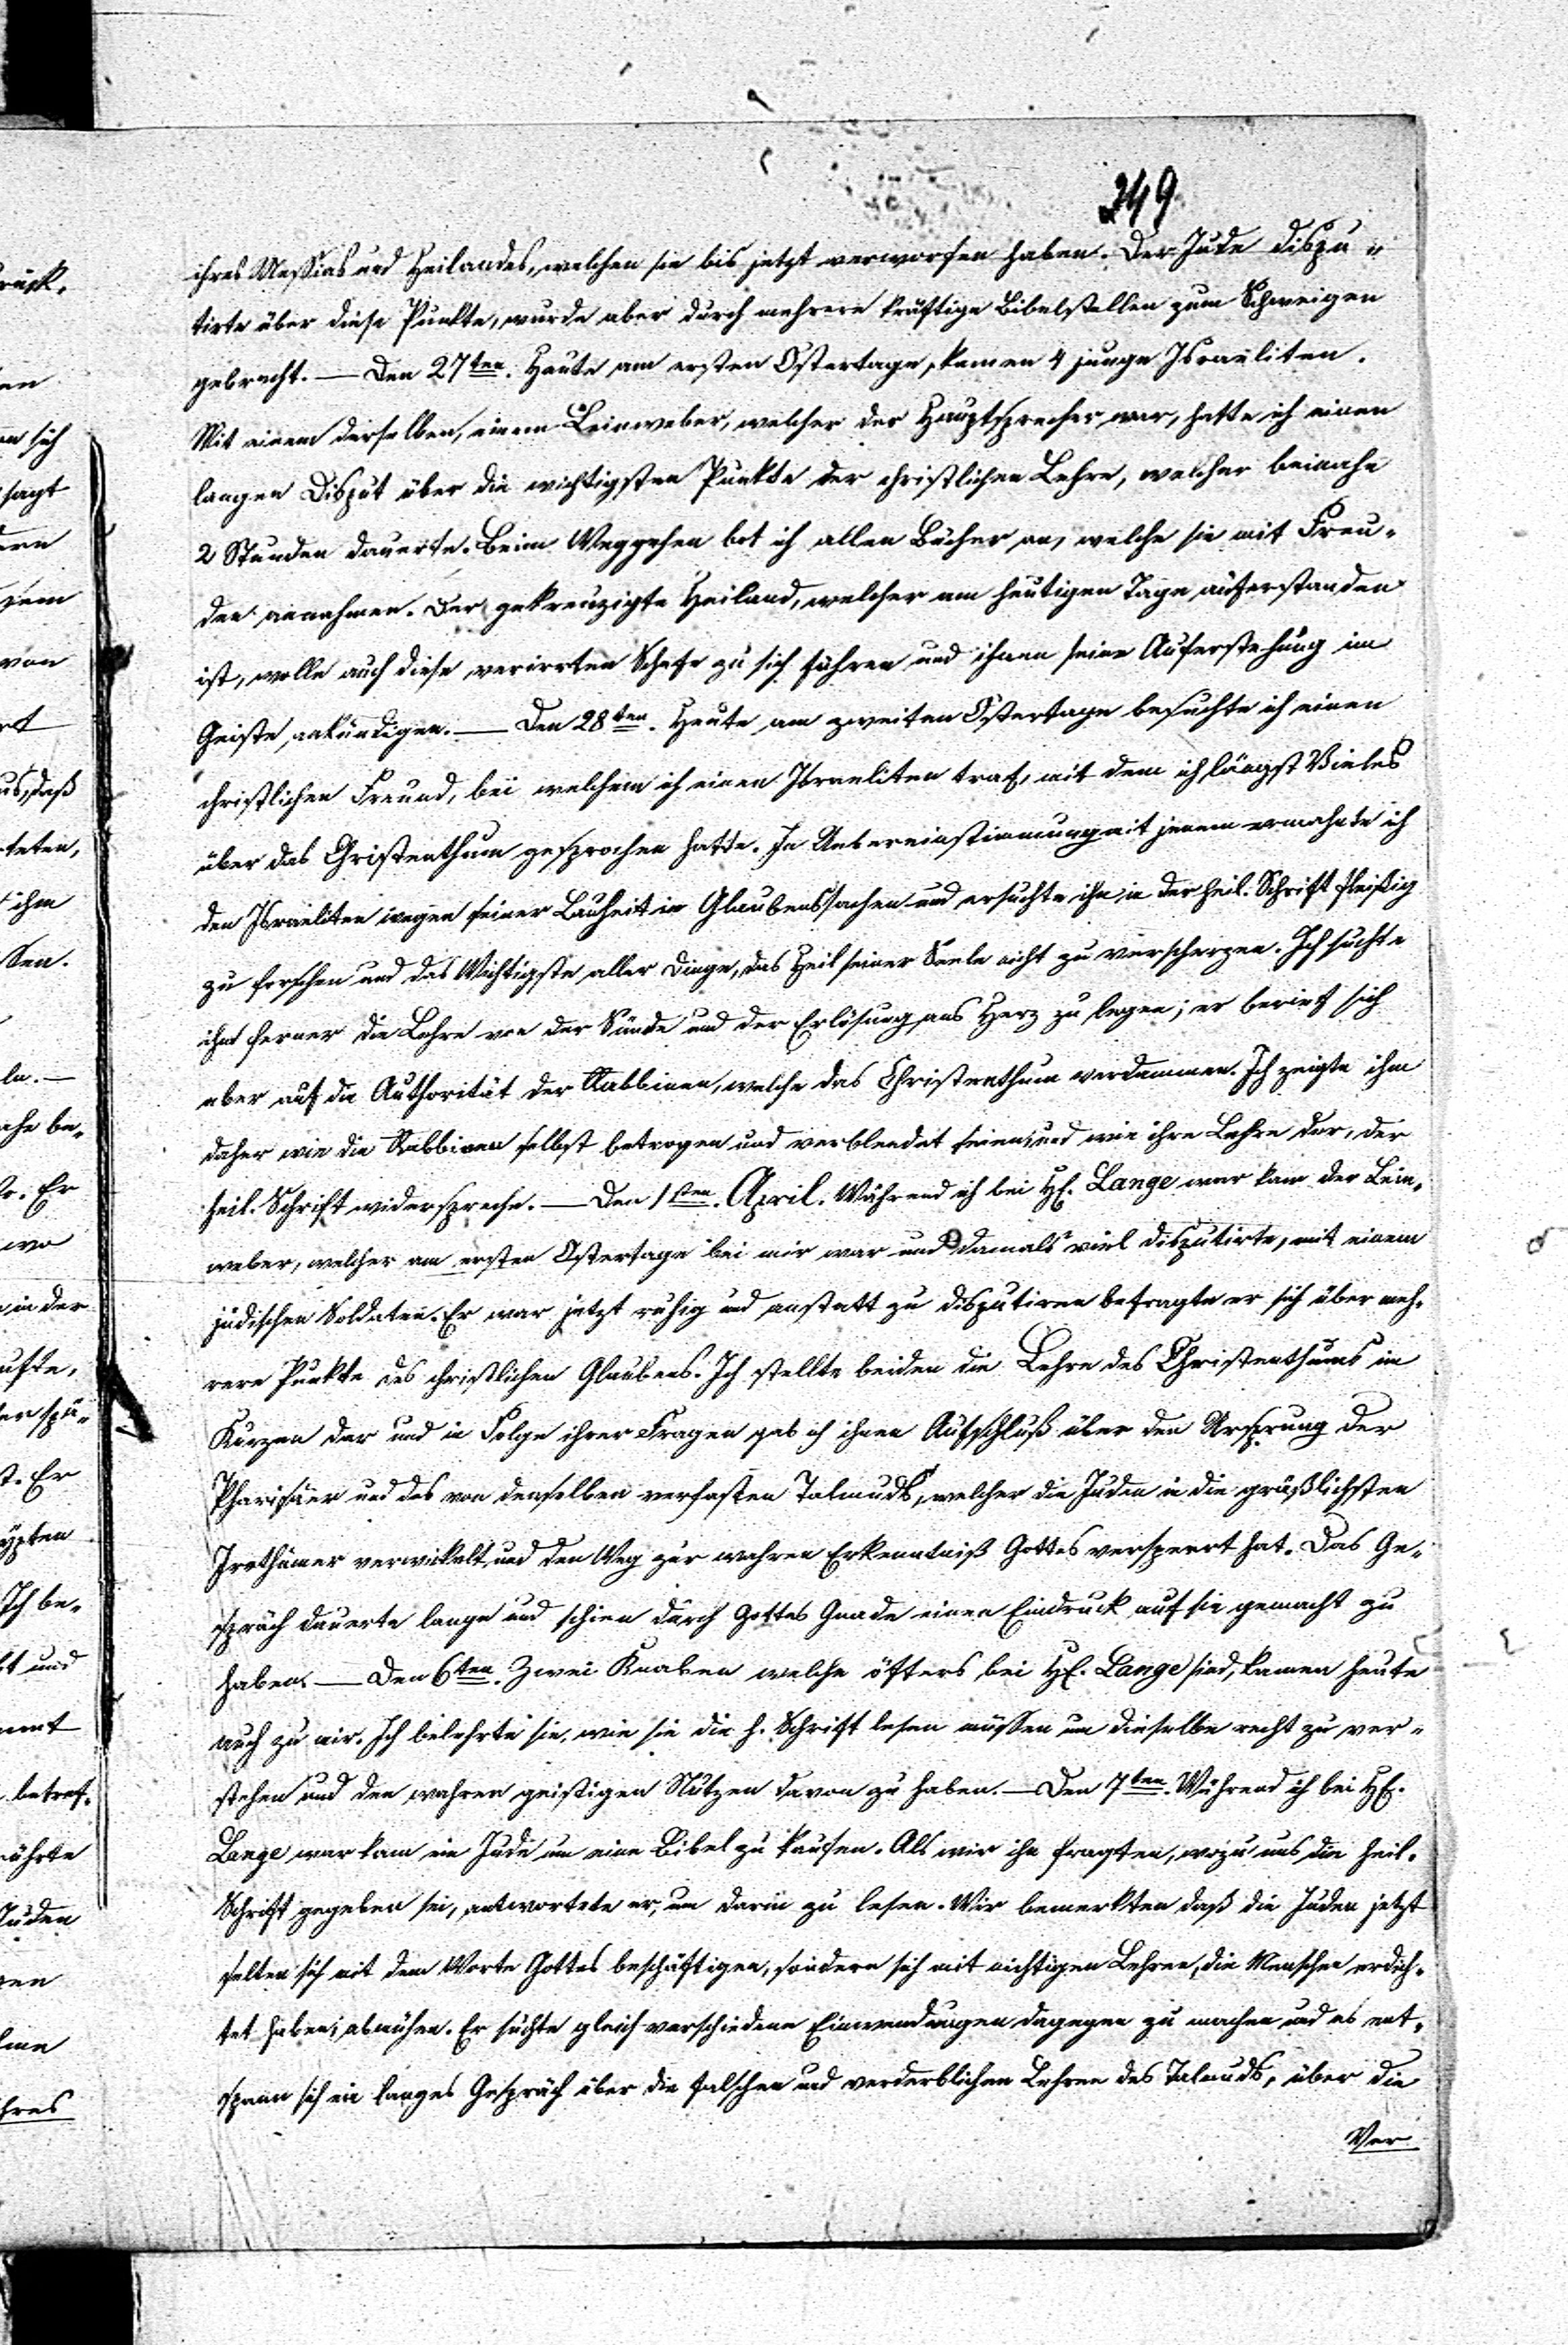 249
ihres Messias und Heilandes, welchen sie bis jetzt verworfen haben. Der Jude dispu-
tirte über diese Punkte, wurde aber durch mehrere kräftige Bibelstellen zum Schweigen
gebracht. — Den 27ten. Heute am ersten Ostertage, kamen 4 junge Israeliten.
Mit einem derselben, einem Leinweber, welcher der Hauptsprecher war, hatte ich einen
langen Disput über die wichtigsten Punkte der christlichen Lehre, welcher beinahe
2 Stunden dauerte. Beim Weggehen bot ich allen Bücher an, welche sie mit Freu-
den annahmen. Der gekreuzigte Heiland, welcher am heutigen Tage auferstanden
ist, wolle auch diese verirrten Schafe zu sich führen und ihnen seine Auferstehung im
Geiste ankündigen. — Den 28ten. Heute am zweiten Ostertage besuchte ich einen
christlichen Freund, bei welchem ich einen Israeliten traf, mit dem ich längst Vieles
über das Christenthum gesprochen hatte. In Uebereinstimmung mit jenem ermahnte ich
den Israeliten wegen seiner Lauheit in Glaubenssachen und ersuchte ihn, in der heil. Schrift fleißig
zu forschen und das Wichtigste aller Dinge, das Heil seiner Seele nicht zu verscherzen. Ich suchte
ihm ferner die Lehre von der Sünde und der Erlösung ans Herz zu legen; er berief sich
aber auf die Authorität der Rabbinen, welche das Christenthum verdammen. Ich zeigte ihm
daher wie die Rabbinen selbst betrogen und verblendet seien und wie ihre Lehre der, der
heil. Schrift widerspreche. — Den 1sten. April. Während ich bei H. Lange war kam der Lein-
weber, welcher am ersten Ostertage bei mir war und damals viel disputirte, mit einem
jüdischen Soldaten. Er war jetzt ruhig und anstatt zu disputiren befragte er sich über meh-
rere Punkte des christlichen Glaubens. Ich stellte beiden die Lehre des Christenthums im
Kurzen dar und in Folge ihrer Fragen gab ich ihnen Aufschluß über den Ursprung der
Pharisäer und des von denselben verfaßten Talmuds, welcher die Juden in die gräßlichsten
Irrthümer verwickelt und den Weg zur wahren Erkenntniß Gottes versperrt hat. Das Ge-
spräch dauerte lange und schien durch Gottes Gnade einen Eindruck auf sie gemacht zu
haben. — Den 6ten. Zwei Knaben welche öfters bei H. Lange sind, kamen heute
auch zu mir. Ich belehrte sie, wie sie die h. Schrift lesen müssen um dieselbe recht zu ver-
stehen und den wahren geistigen Nutzen davon zu haben. — Den 7ten. Während ich bei H.
Lange war kam ein Jude um eine Bibel zu kaufen. Als wir ihn fragten, wozu uns die heil.
Schrift gegeben sei, antwortete er, um darin zu lesen. Wir bemerkten daß die Juden jetzt
selten sich mit dem Worte Gottes beschäftigen, sondern sich mit nichtigen Lehren, die Menschen erdich-
tet haben, abmühen. Er suchte gleich verschiedene Einwendungen dagegen zu machen und es ent-
spann sich ein langes Gespräch über die falschen und verderblichen Lehren des Talmuds, über die
Ver